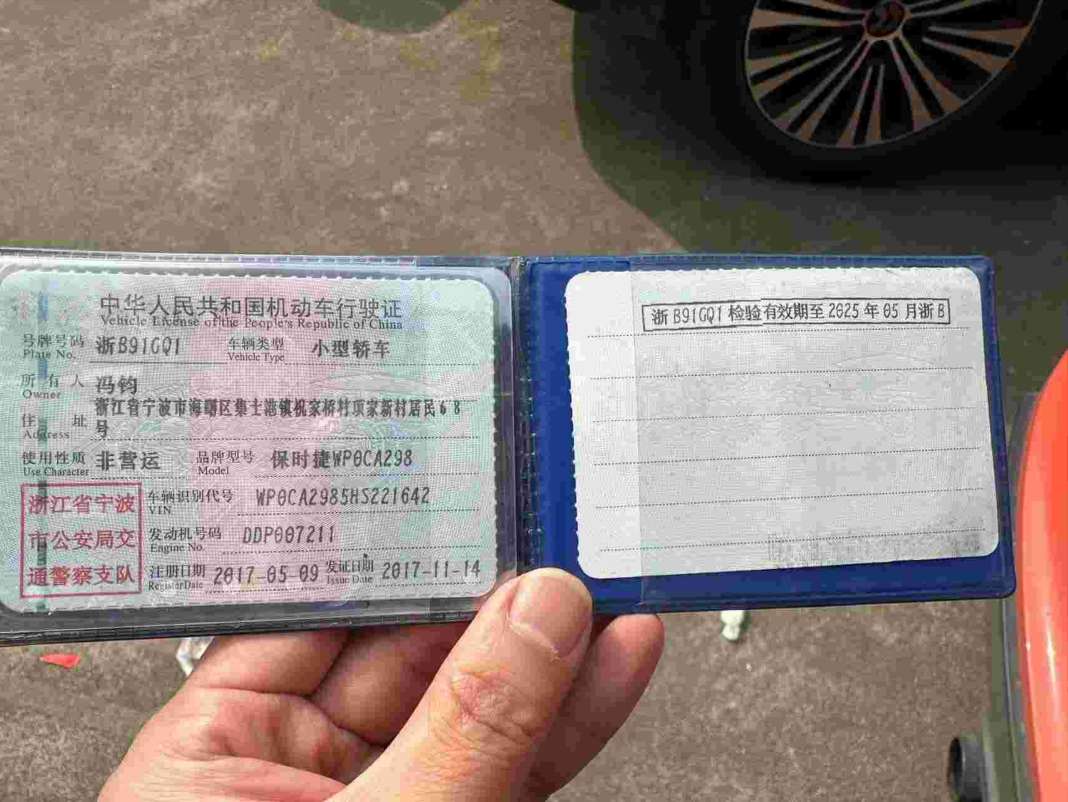 中华人民共和国机动车行驶证
Vehicle License of the People's Republic of China
号牌号码 浙B91GQ1 车辆类型 小型轿车
Plate No. Vehicle Type
所有人 冯钧
Owner
住址 浙江省宁波市海曙区集士港镇祝家桥村项家新村居民68
Address 号
使用性质 非营运 品牌型号 保时捷WP0CA298
Use Character Model
浙江省宁波 车辆识别代号 WP0CA2985HS221642
VIN
市公安局交 发动机号码 DDP007211
Engine No.
通警察支队 注册日期 2017-05-09 发证日期 2017-11-14
Register Date Issue Date
浙B91GQ1 检验有效期至 2025年05月浙B